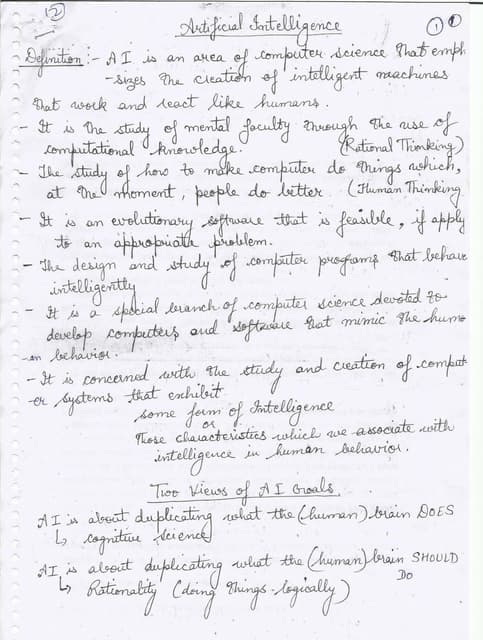 (2)
Artificial Intelligence
① ①
Definition :- AI is an area of computer science that emph
-sizes the creation of intelligent machines
that work and react like humans.
- It is the study of mental faculty through the use of
computational knowledge. (Rational Thinking)
- The study of how to make computer do things which,
at the moment, people do better (Human Thinking
- It is an evolutionary software that is feasible, if apply
to an appropriate problem.
- The design and study of computer programs that behave
intelligently
- It is a special branch of computer science devoted to
develop computers and software that mimic the hum
-an behavior.
- It is concerned with the study and creation of comput
-er systems that exhibit
some form of Intelligence
or
Those characteristics which we associate with
intelligence in human behavior.
Two Views of AI Goals
AI is about duplicating what the (human) brain DOES
↳ cognitive Science
AI is about duplicating what the (human) brain SHOULD
DO
↳ Rationality (doing things logically)